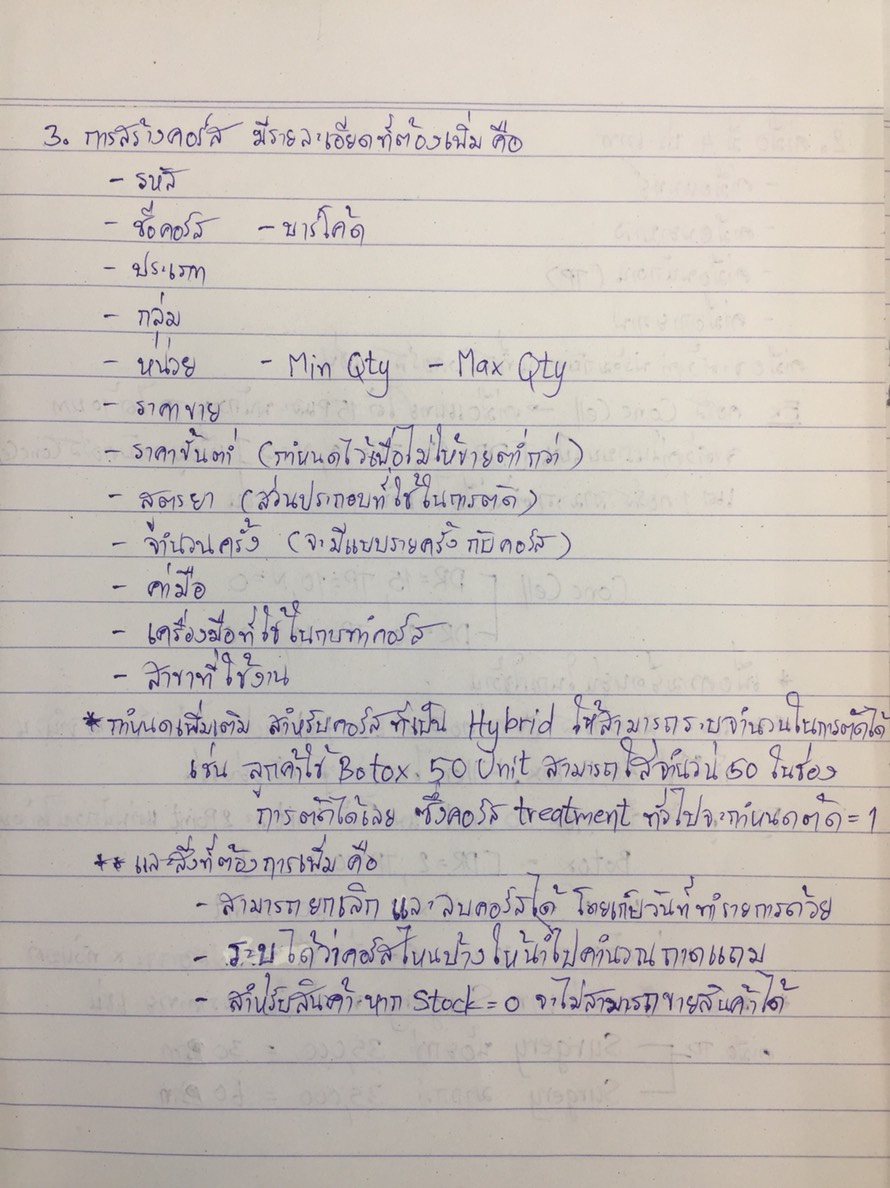 3. การสร้างคอร์ส มีรายละเอียดที่ต้องเพิ่ม คือ
- รหัส
- ชื่อคอร์ส - บาร์โค้ด
- ประเภท
- กลุ่ม
- หน่วย - Min Qty - Max Qty
- ราคาขาย
- ราคาขั้นต่ำ (กำหนดไว้เพื่อไม่ให้ขายต่ำกว่า)
- สูตรยา (ส่วนประกอบที่ใช้ในการตัด)
- จำนวนครั้ง (จะมีแบบรายครั้ง กับ คอร์ส)
- ค่ามือ
- เครื่องมือที่ใช้ในการทำคอร์ส
- สาขาที่ใช้งาน
* กำหนดเพิ่มเติม สำหรับคอร์ส ที่เป็น Hybrid ให้สามารถระบุจำนวนในการตัดได้
เช่น ลูกค้าใช้ Botox 50 Unit สามารถใส่จำนวน 50 ในช่อง
การตัดได้เลย ซึ่งคอร์ส treatment ทั่วไปจะกำหนดตัด = 1
** และสิ่งที่ต้องการเพิ่ม คือ
- สามารถยกเลิก และลบคอร์สได้ โดยเก็บวันที่ทำรายการด้วย
- ระบุได้ว่าคอร์สไหนบ้าง ให้นำไปคำนวณ แถม
- สำหรับสินค้า หาก Stock = 0 จะไม่สามารถขายสินค้าได้